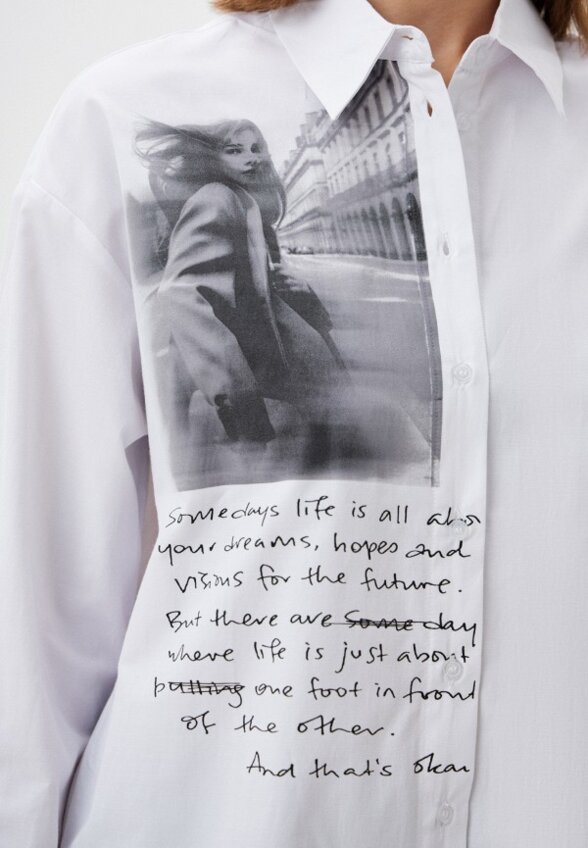 Somedays life is all abo
your dreams, hopes and
visions for the future.
But there are some day
where life is just about
putting one foot in front
of the other.
And that's okay